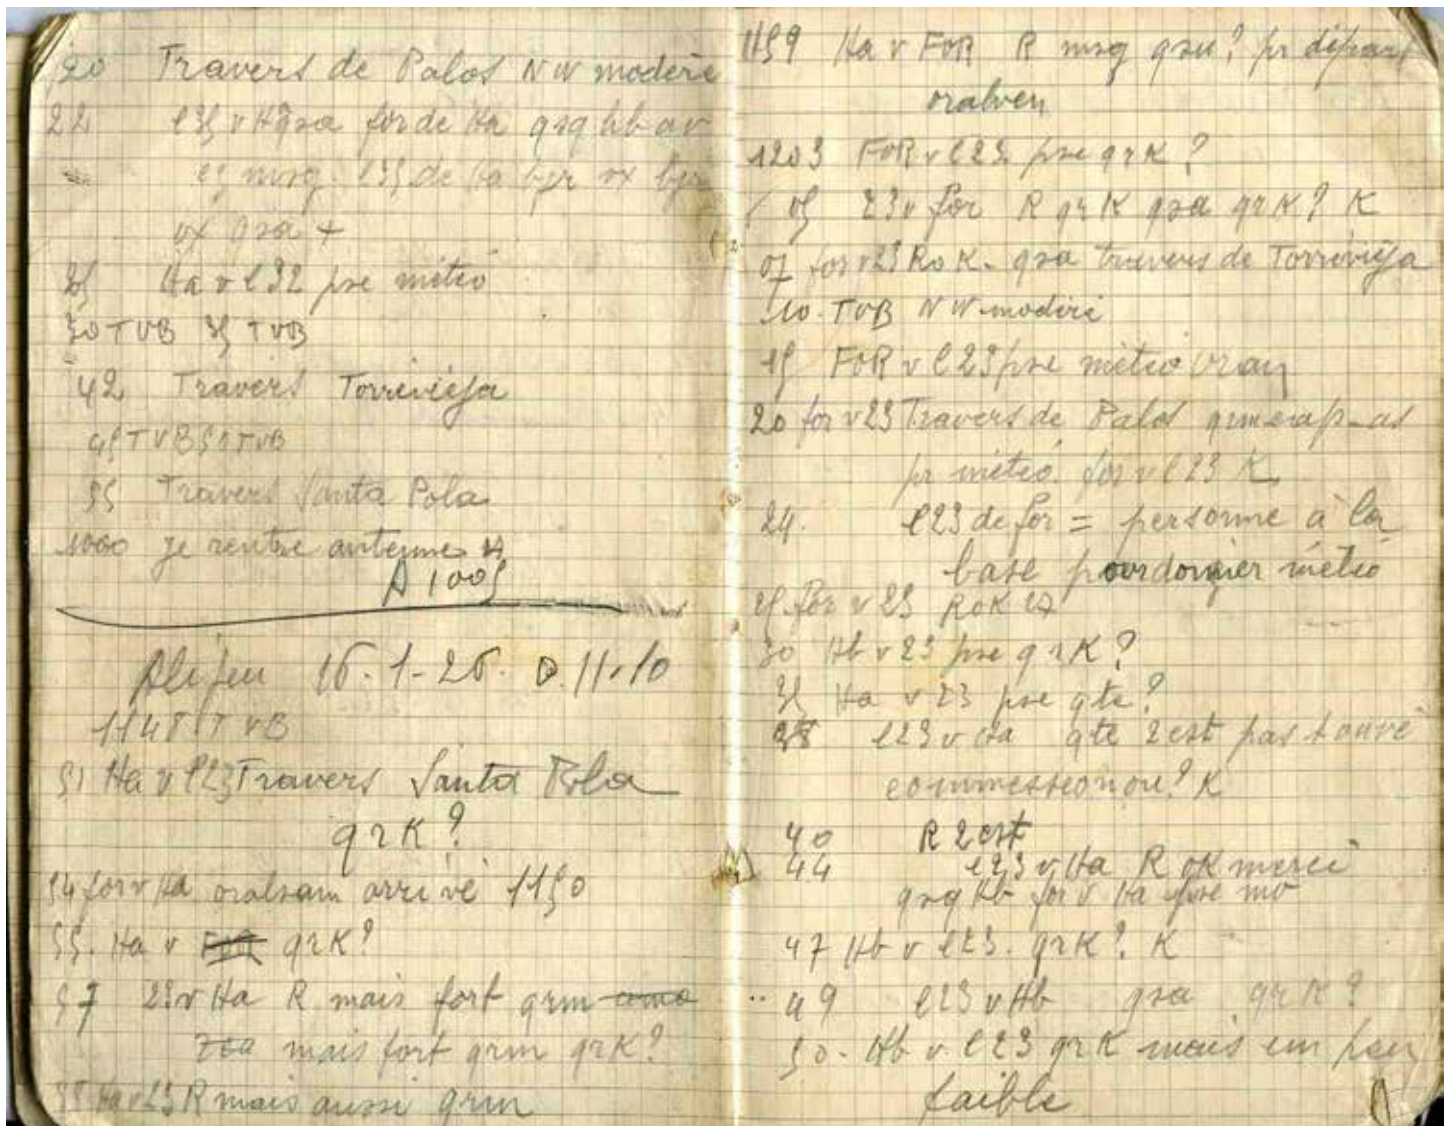 20 Travers de Palos NW modéré
22 e35 v Ha qsa for de Ha qsq hb av
msg. e35 de Ha bjr vx bjr
vx qsa +
25 Ha v e32 pse météo
30 TVB 35 TVB
42 Travers Torrevieja
45 TVB 50 TVB
55 Travers Santa Pola
1000 je rentre antenne
A 1005
16-1-26. D. 11.10
1148 TVB
51 Ha v e23 Travers Santa Pola
qrK?
54 for v Ha oralsam arrivé 1150
55. Ha v FOR qrK?
57 23 v Ha R mais fort qrm
mais fort qrm qrK?
58 Ha v 23 R mais aussi qrm
1159 Ha v FOR R msg qsu? pr départ
oralven
1203 FOR v e23. pse qrK?
05 23 v for R qrK qsa qrK? K
07 for v 23 R OK. qsa travers de Torrevieja
10. TVB NW modéré
15 FOR v e23 pse météo oran
20 for v 23 Travers de Palos qrm
pr météo. for v e23 K
24. e23 de for = personne à la
base pour donner météo
25 for v 23 R OK
30 Hb v 23 pse qrK?
35 Ha v 23 pse qte?
38 e23 v Ha qte 2est pas trouvé
K
40 R 2est
44 e23 v Ha R OK merci
qsq Hb for v Ha pse mo
47 Hb v e23. qrK? K
49 e23 v Hb qsa qrK?
50. Hb v e23 qrK mais un peu
faible